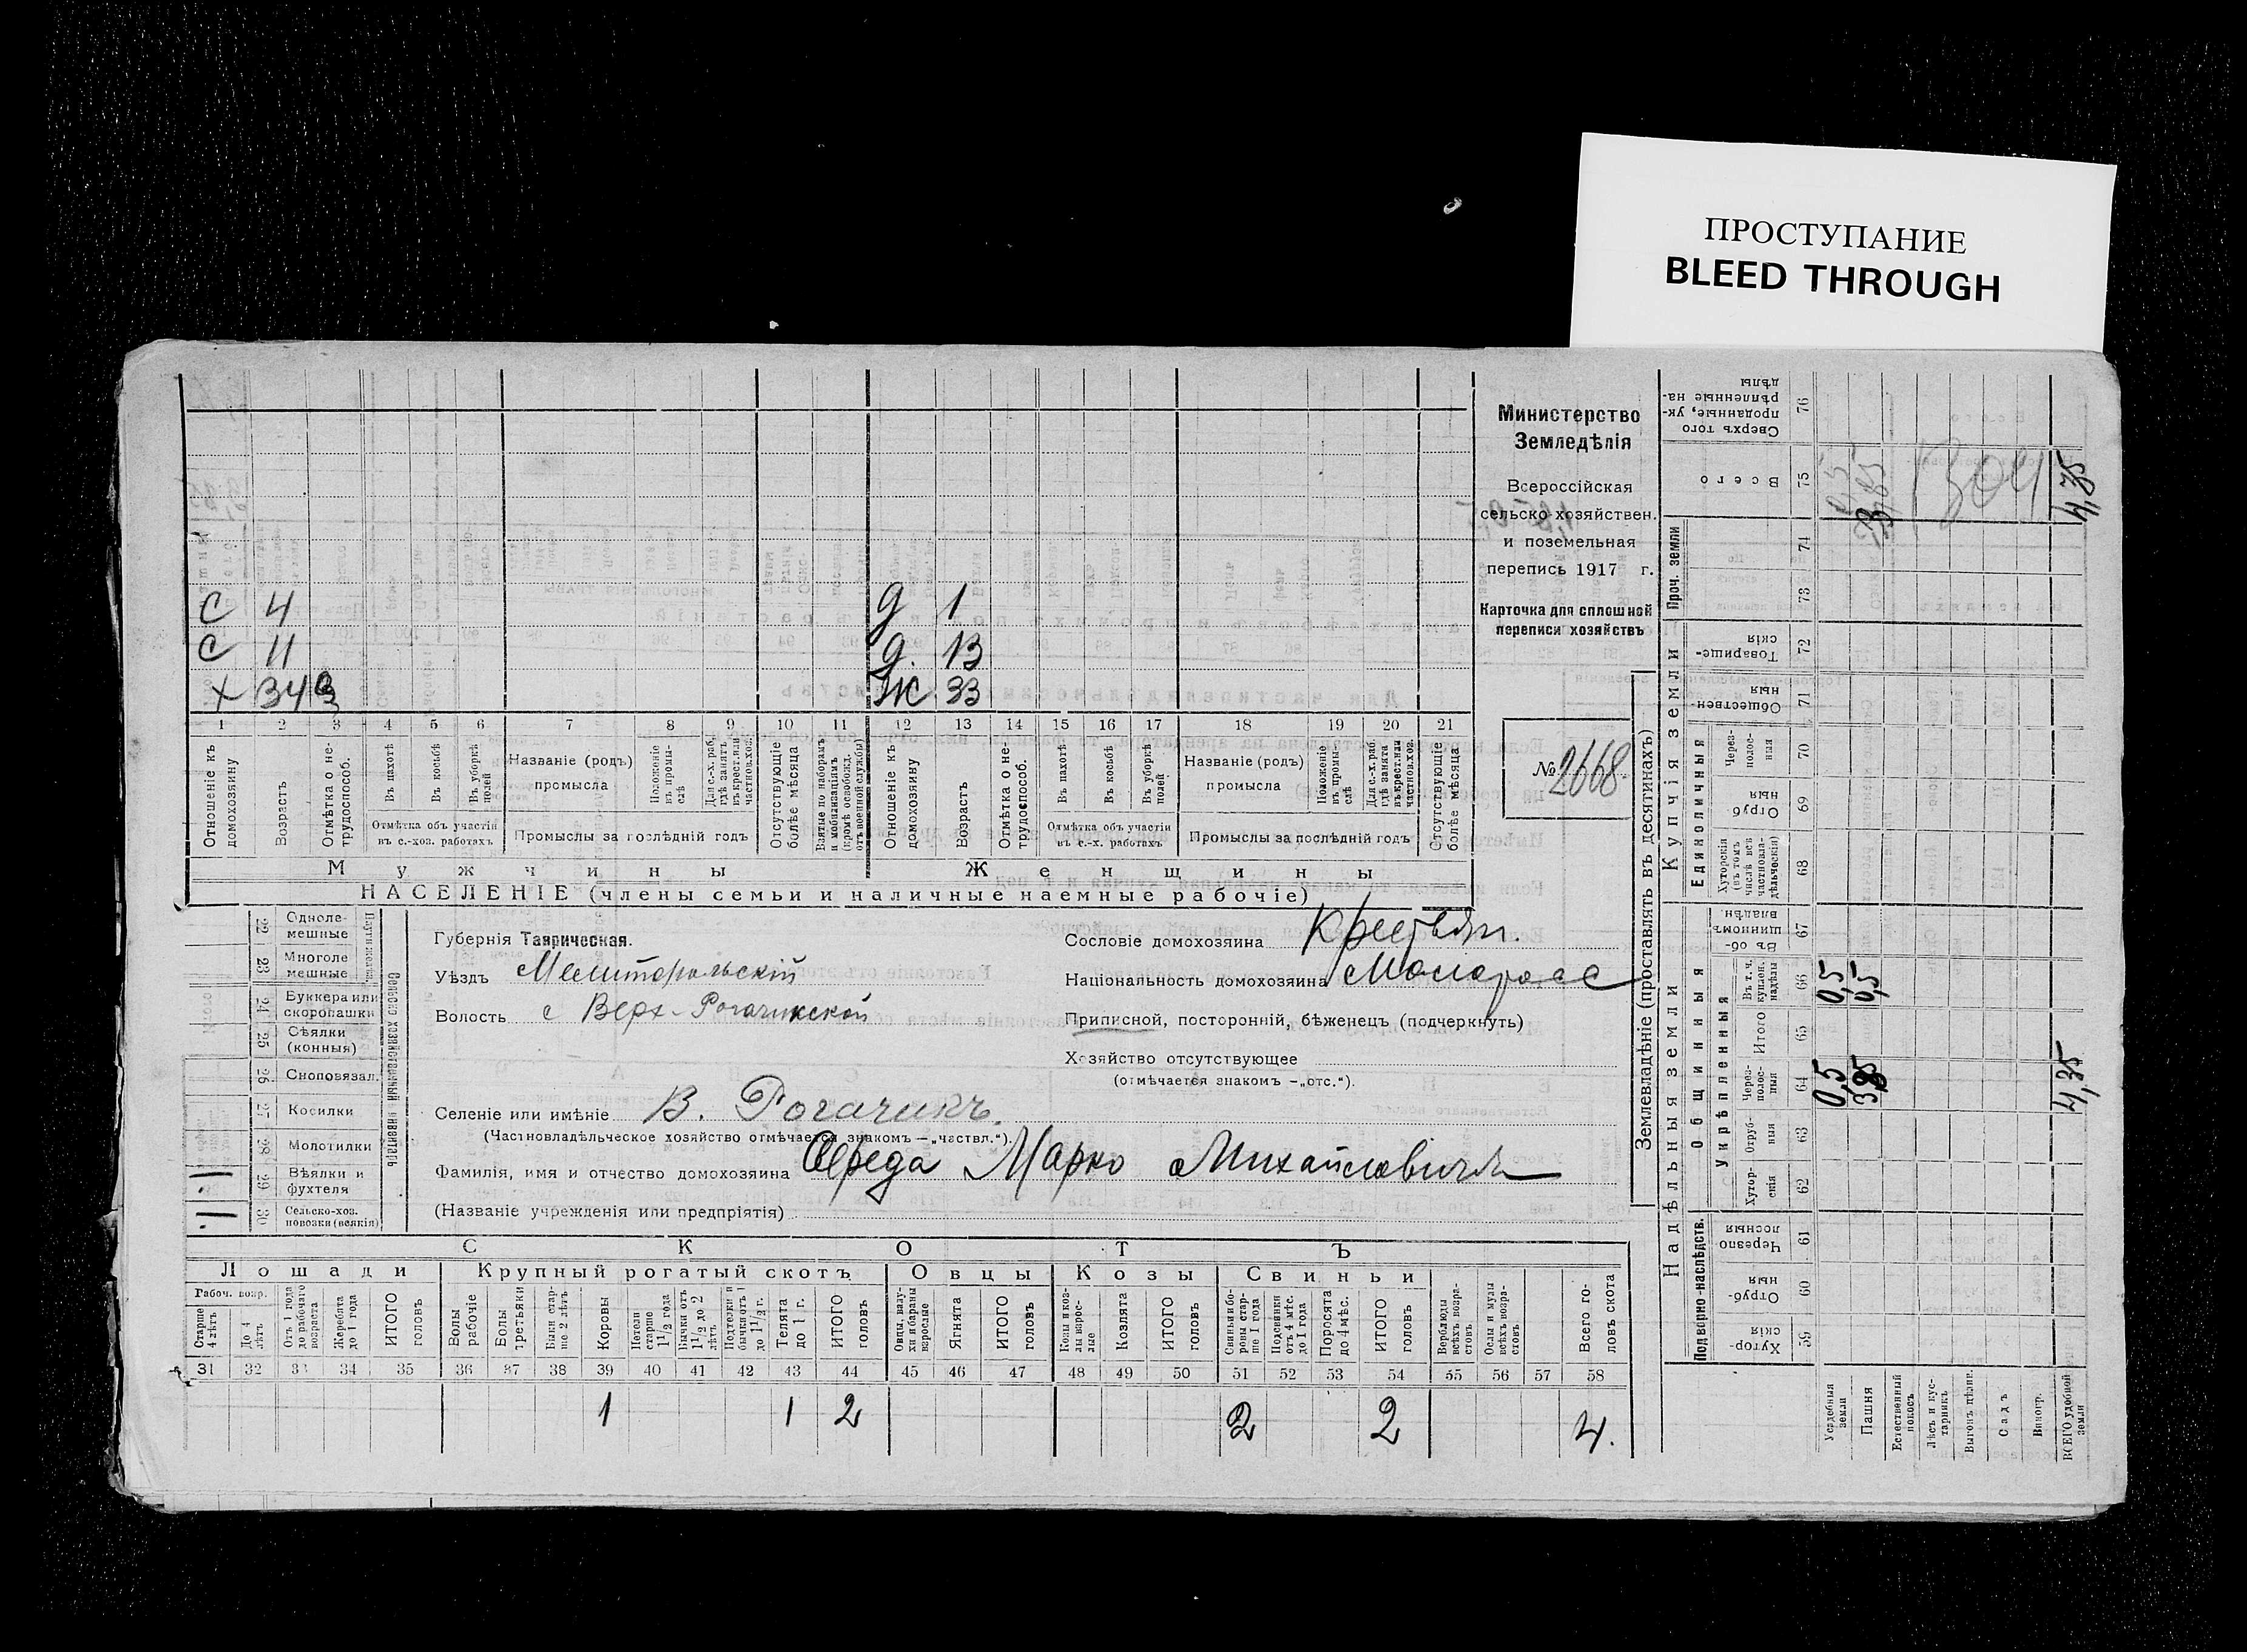 ПРОСТУПАНИЕ
BLEED THROUGH
Министерство
Земледѣлія
Всероссійская
сельско-хозяйствен.
и поземельная
перепись 1917 г.
Карточка для сплошной
переписи хозяйствъ
№ 2668
С 4
С 11
Х 34
д 1
д. 13
Ж 33
1 2 3 4 5 6 7 8 9 10 11 12 13 14 15 16 17 18 19 20 21
Отношеніе къ домохозяину
Возрастъ
Отмѣтка о не-трудоспособ.
Въ пахотѣ
Въ косьбѣ
Въ уборкѣ полей
Отмѣтка объ участіи въ с.-хоз. работахъ
Названіе (родъ) промысла
Положеніе въ промы-слѣ
Для с.-х. раб. гдѣ занятъ въ крест. или частнов. хоз.
Промыслы за послѣдній годъ
Отсутствующіе болѣе мѣсяца
Взятые по наборамъ и мобилизаціямъ (кромѣ освобожд. отъ военной службы)
Отношеніе къ домохозяину
Возрастъ
Отмѣтка о не-трудоспособ.
Въ пахотѣ
Въ косьбѣ
Въ уборкѣ полей
Отмѣтка объ участіи въ с.-х. работахъ
Названіе (родъ) промысла
Положеніе въ промы-слѣ
Для с.-х. раб. гдѣ занята въ крест. или частнов. хоз.
Промыслы за послѣдній годъ
Отсутствующіе болѣе мѣсяца
Мужчины
Женщины
НАСЕЛЕНІЕ (члены семьи и наличные наемные рабочіе)
22 Одноле-мешные
23 Многоле мешные
24 Буккера или скоропашки
25 Сѣялки (конныя)
26 Сноповязал.
27 Косилки
28 Молотилки
29 Вѣялки и фухтеля
30 Сельско-хоз. повозки (всякія)
Губернія Таврическая.
Уѣздъ Мелитопольскій
Волость с Верх-Рогачикской
Селеніе или имѣніе В. Рогачикъ.
(Частновладѣльческое хозяйство отмѣчается знакомъ — „частвл.“).
Фамилія, имя и отчество домохозяина Середа Марко Михайловичъ
(Названіе учрежденія или предпріятія)
Сословіе домохозяина Крестьян.
Національность домохозяина Малоросс
Приписной, посторонній, бѣженецъ (подчеркнуть)
Хозяйство отсутствующее
(отмѣчается знакомъ —„отс.“).
СКОТЪ
Лошади
Крупный рогатый скотъ
Овцы
Козы
Свиньи
Рабоч. возр.
Старше 4 лѣтъ
До 4 лѣтъ
Отъ 1 года до рабочаго возраста
Жеребята до 1 года
ИТОГО головъ
Волы рабочіе
Волы третьяки
Быки стар-ше 2 лѣтъ
Коровы
Нетели старше 1 1/2 года
Бычки отъ 1 1/2 до 2 лѣтъ
Подтелки и бычки отъ 1 до 1 1/2 г.
Телята до 1 г.
ИТОГО головъ
Овцы, валу-хи и бараны взрослые
Ягнята
ИТОГО головъ
Козы и коз-лы взрос-лые
Козлята
ИТОГО головъ
Свиньи бо-ровы стар-ше 1 года
Подсвинки отъ 4 мѣс. до 1 года
Поросята до 4 мѣс.
ИТОГО головъ
Верблюды всѣхъ возра-стовъ
Ослы и мулы всѣхъ возра-стовъ
Всего го-ловъ скота
31 32 33 34 35 36 37 38 39 40 41 42 43 44 45 46 47 48 49 50 51 52 53 54 55 56 57 58
1 1 2 2 2 4.
Землевладѣніе (проставлять въ десятинахъ)
Надѣльныя земли
Купчія земли
Проч. земли
Подворно-наслѣдств.
Общинныя
Укрѣпленныя
Единоличныя
Хутор-скія 59
Отруб-ныя 60
Черезпо лосныя 61
Хутор-скія 62
Отруб-ныя 63
Через-полос-ныя 64
Итого 65
Въ т. ч. куплен. надѣлы 66
Въ об-щинномъ владѣн. 67
Хуторскія (въ томъ числѣ всѣ частновла-дѣльческія) 68
Отруб ныя 69
Через-полос-ныя 70
Обществен-ныя 71
Товарище-скія 72
73
74
Всего 75
Сверхъ того проданные, ук-рѣпленные на-дѣлы 76
Усадебныя земли
Пашня
Естественный покосъ
Лѣсъ и кус-тарникъ
Выгонъ
Садъ
Виногр.
ВСЕГО удобной земли
0,5
0,5
0,5
3,85
4,35
0,5
3,85
1304
4,35